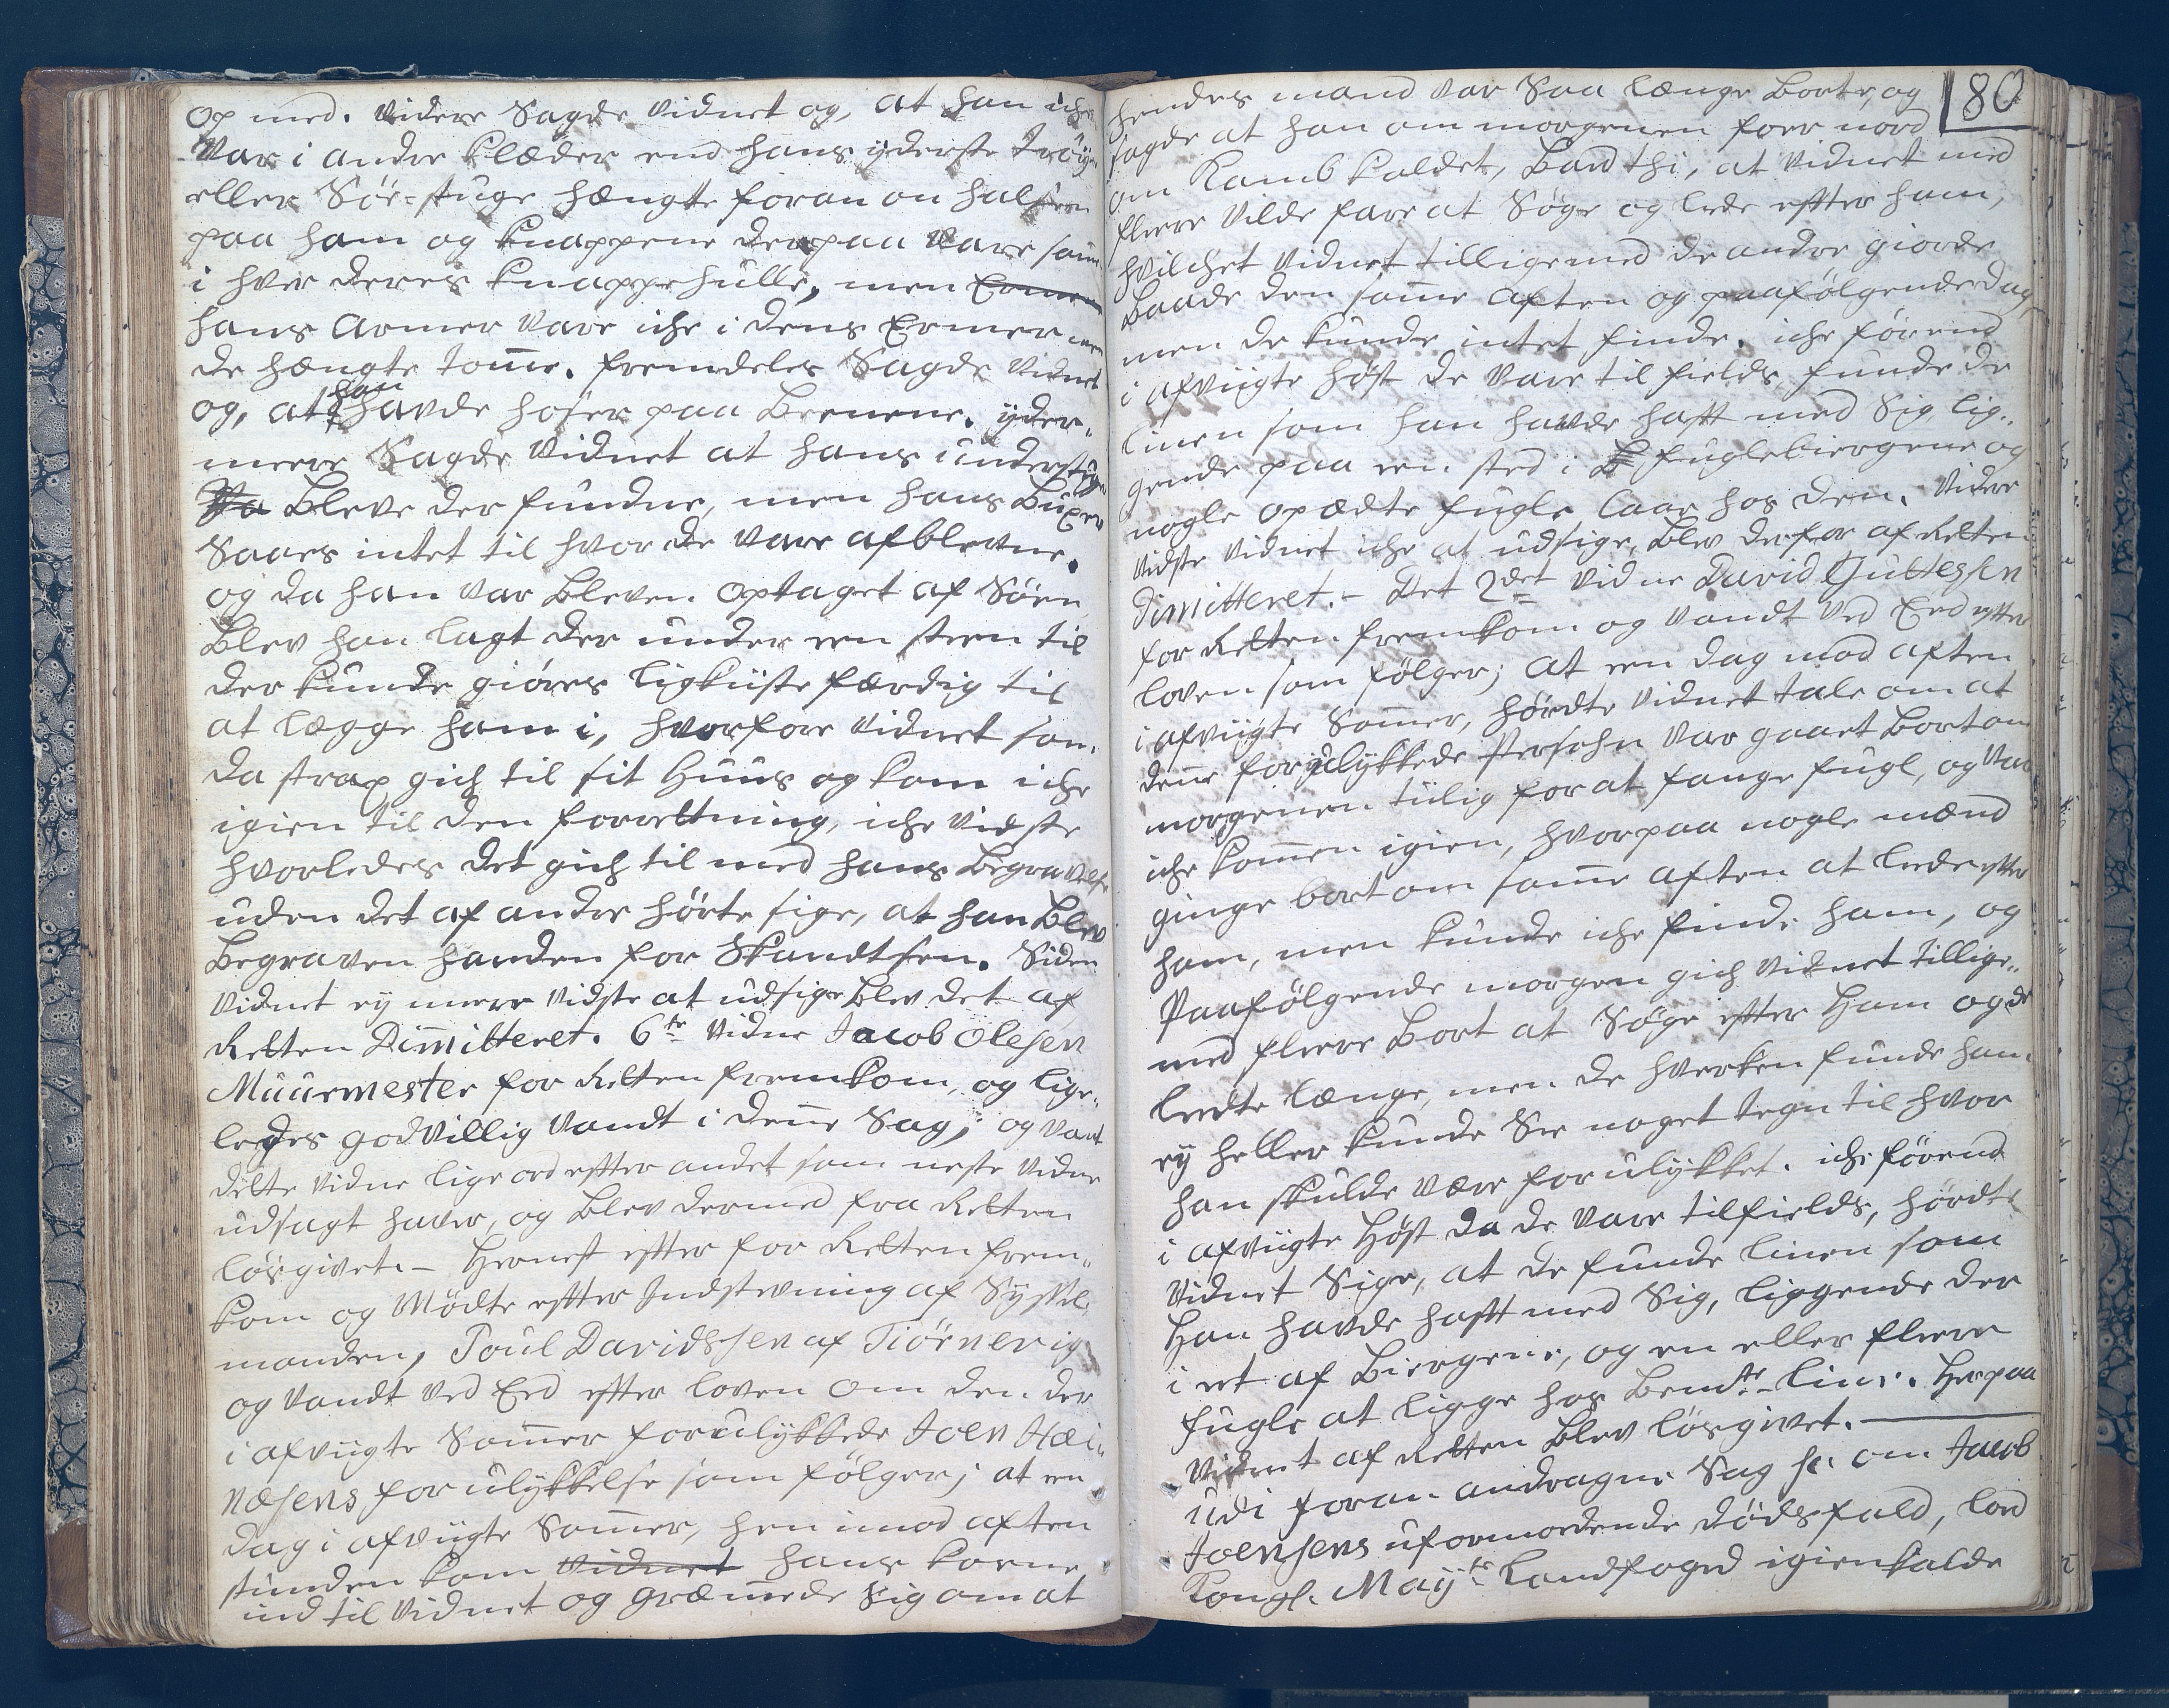 op med. Videre Sagde Vidnet og, at han iche
Var i andre klæder end hans yderste trøye
eller Søe-stuge hængte foran om halsen
paa ham og knappene derpaa Vare saa
i hver deres knappehulle, men Ermer
hans Armer Vare iche i dens Ermer men
de hængte tom̅e. fremdeles Sagde Vidnet
og, at han havde hoser paa Beenene. yder„
meere Sagde Vidnet at hans under
Bleve der fundne, men hans Buxer
Saaes intet til hvor de Vare afblevne.
og da han Var Bleven optaget af Søen
Blev han lagt der under een steen til
der kunde giøres ligkiiste færdig til
at lægge ham i, hvorfore Vidnet som
da strax gich til sit Huus og kom iche
igien til den forretning, iche Vidste
hvorledes det gich til med hans Begravelse
uden det af andre hørte sige, at han Blev
Begraven Handen for Skandtsen. Siden
Vidnet ey meere Vidste at udsige Blev det af
Retten Dim̅itteret. 6te Vidne Jacob Olesen
Muurmester for Retten fremkom, og lige„
ledes godvillig Vandt i den̅e Sag; og Vant
dette Vidne lige ord efter andet som neste Vidne
udsagt haver, og Blev dermed fra Retten
løsgivet. – Hernest efter for Retten frem„
kom og Mødte efter Indstevning af Syssel„
manden, Poul Davidssen af Tiørnevig
og Vandt Ved Eed efter loven om den der
i afvigte Som̅er forulykkede Joen Hei„
næsens forulykkelse som følger; at een
dag i afvigte Som̅er, hen imod aften
stunden kom Vidnet hans kone
ind til Vidnet og græm̅ede sig om at
80
hendes mand Var Saa længe Borte, og
sagde at han om morgenen foer nord
om Kamb kaldet, Band thi, at Vidnet med
fleere Vilde fare at Søge og lede efter ham,
hvilchet Vidnet tilligemed de andre giorde
Baade den sam̅e aften og paafølgende dag,
men de kunde intet finde. iche førend
i afvigte Høst de Vare til fields funde de
linen som han havde haft med Sig, lig„
gende paa een sted i fuglebiergene og
nogle opædte fugle laae hos den. Videre
Vidste Vidnet iche at udsige, Blev derfor af Retten
dimitteret. – Det 2det Vidne David Guttessen
for Retten fremkom og Vandt Ved Eed efter
loven som følger; at een dag mod aften
i afvigte Som̅er, hørdte Vidnet tale om at
den̅e forulykkede Persohn Var gaaet Bort om
morgenen tiilig for at fange fugl, og Var
iche kom̅en igien, hvorpaa nogle mænd
ginge bort om sam̅e aften at leede efter
ham, men kunde iche finde ham, og
Paafølgende morgen gich Vidnet tillige„
med fleere Bort at Søge efter Ham og de
leedte længe, men de hverken funde ham
ey heller kunde See noget tegn til hvor
han skulde Være forulykket. iche førend
i afvigte Høst da de Vare til fields, hørdte
Vidnet Sige, at de funde linen som
Han havde haft med Sig, liggende der
i eet af Biergene, og en eller fleere
fugle at ligge hos Bemdte line. Herpaa
Vidnet af Retten Blev løsgivet.
Udi foran andragne Sag sc: om Jacob
Joensens uformodende dødsfald, lod
Kongl. Mayts Landfoged igienkalde